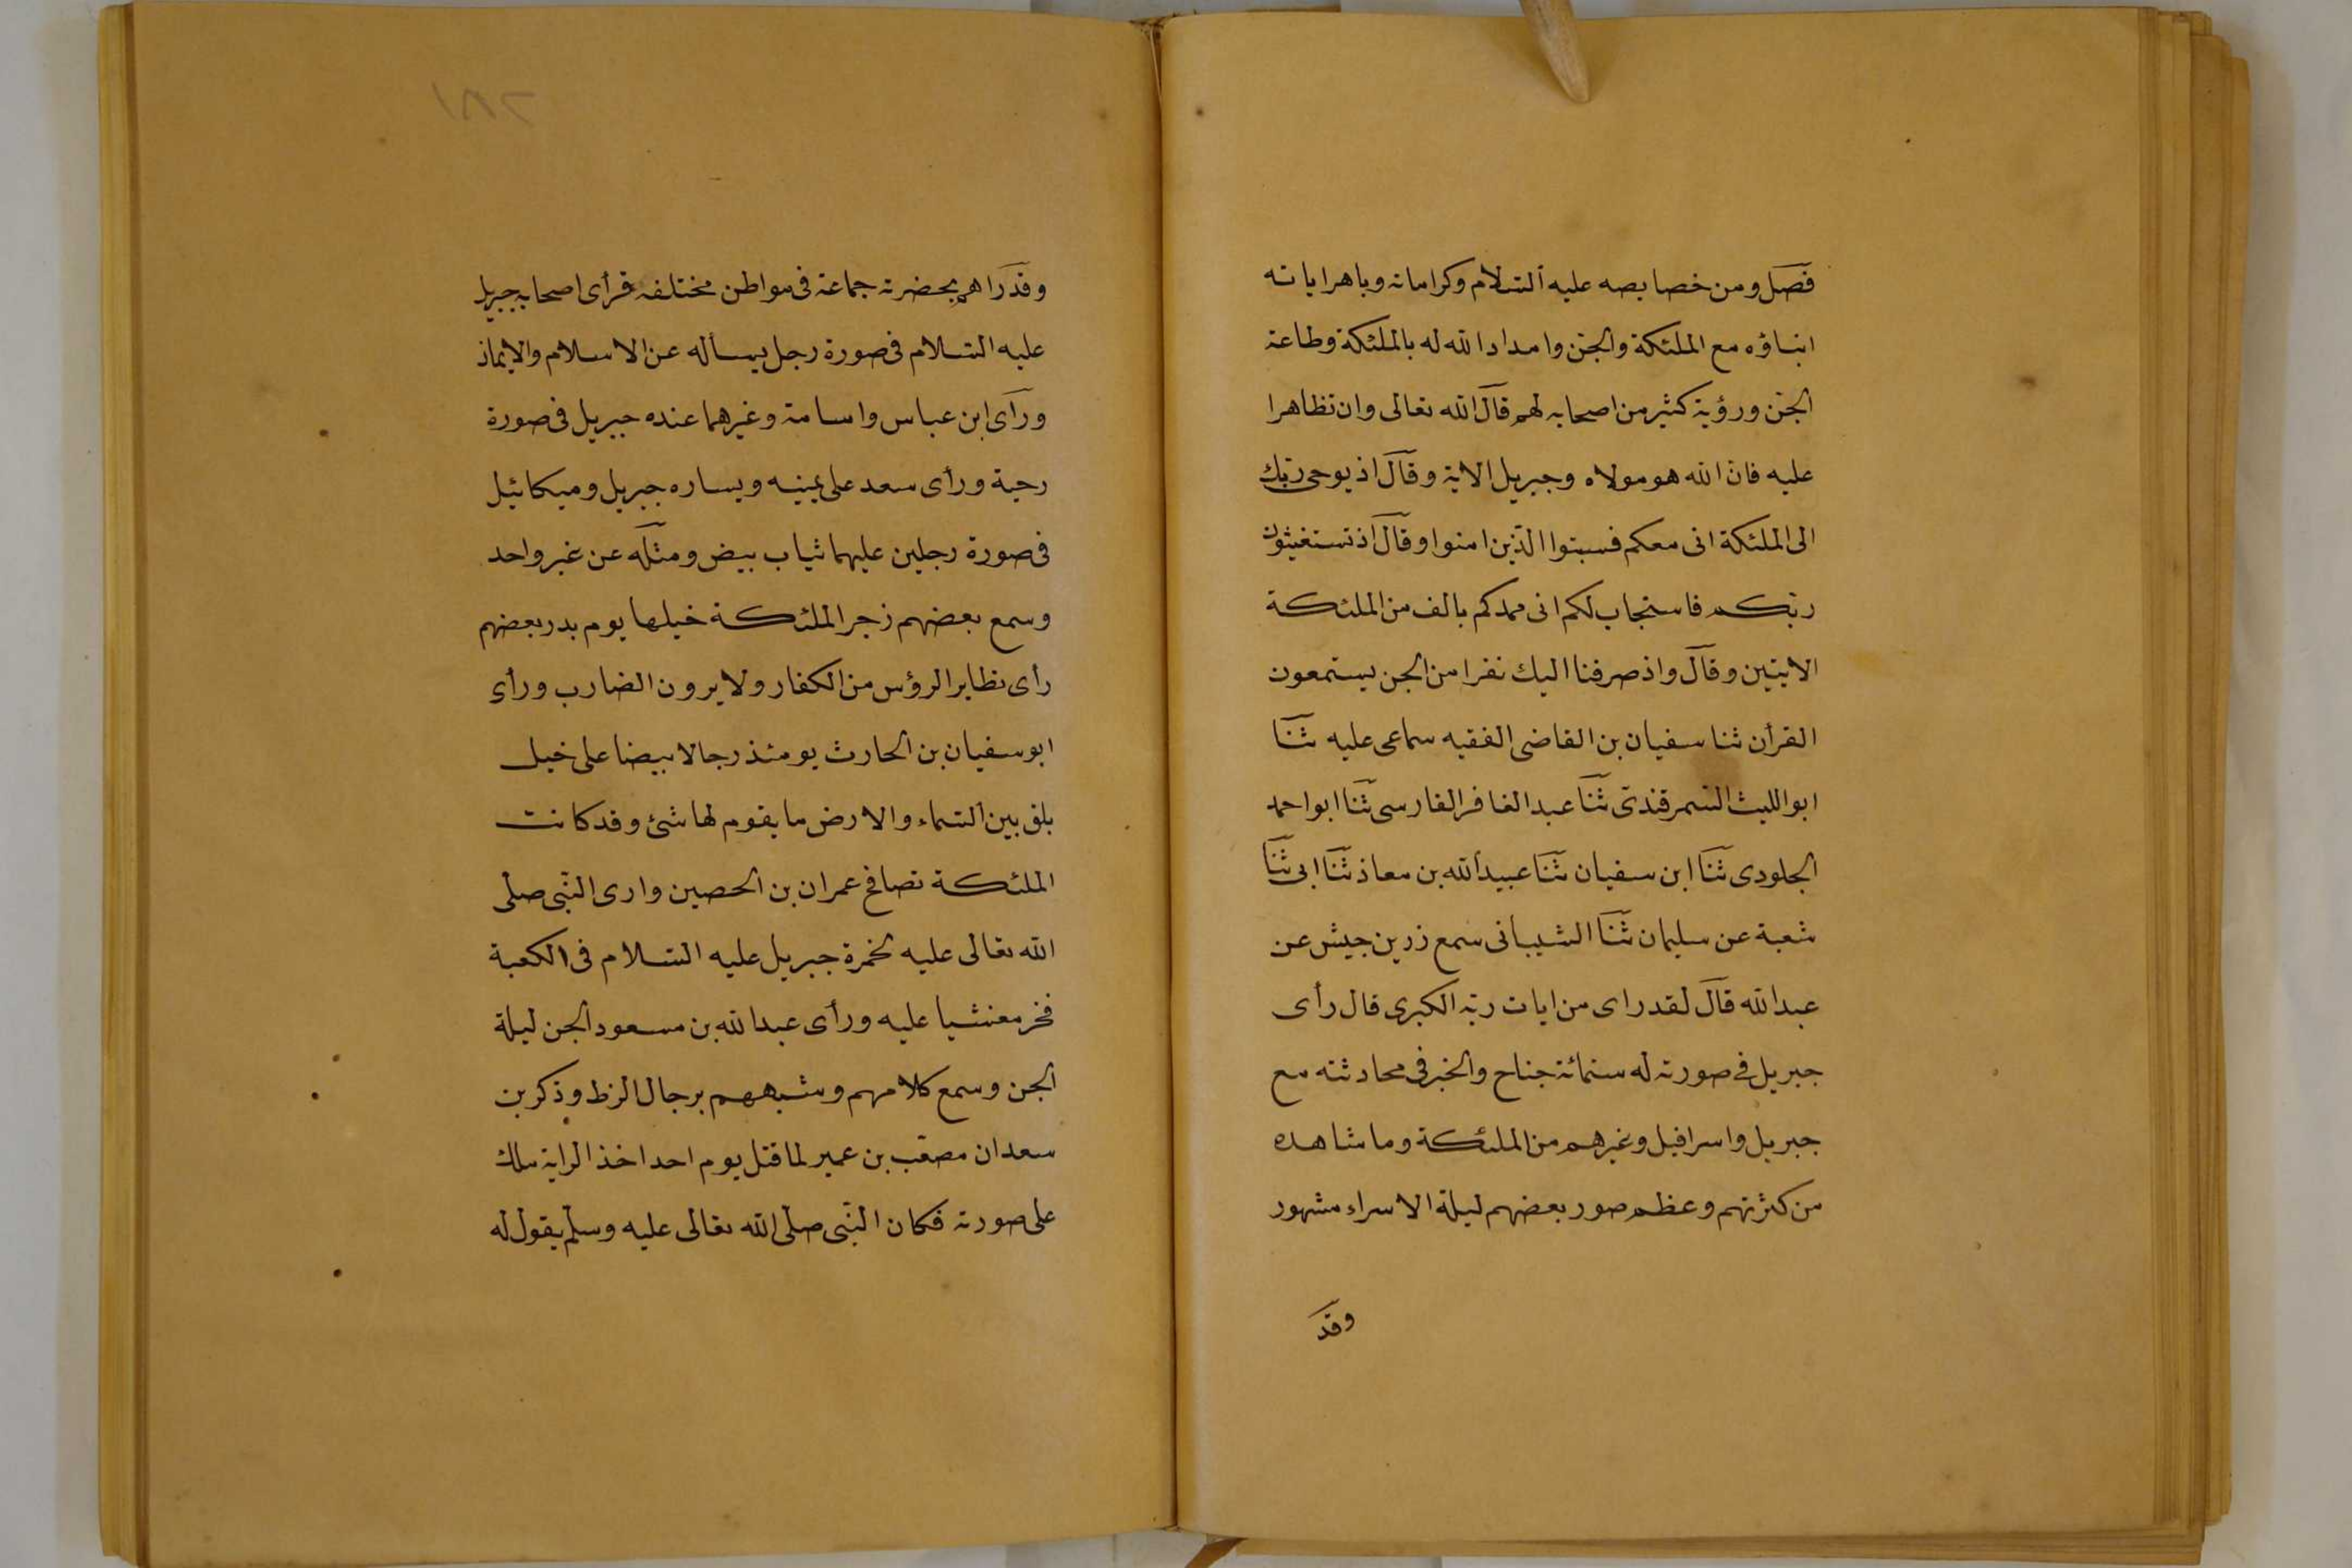 فصل ومن خصايصه عليه السلام وكراماته وباهراياته
انباؤه مع الملئكة والجن وامداد الله له بالملئكة وطاعة
الجن ورؤية كثير من اصحابه لهم قال الله تعالى وان تظاهرا
عليه فان الله هو مولاه وجبريل الاية وقال اذ يوحى ربك
الى الملئكة انى معكم فسبتوا الذين امنوا وقال اذ تستغيثون
ربكم فاستجاب لكم انى ممدكم بالف من الملئكة
الايتين وقال واذ صرفنا اليك نفرا من الجن يستمعون
القرأن ثنا سفيان بن القاضى الفقيه سماعى عليه ثنا
ابو الليث السمرقندى ثنا عبد الغافر الفارسى ثنا ابو احمد
الجلودى ثنا ابن سفيان ثنا عبيد الله بن معاذ ثنا ابى ثنا
شعبة عن سليمان ثنا الشيبانى سمع زر بن جيش عن
عبد الله قال لقد راى من ايات ربه الكبرى قال رأى
جبريل فى صورته له ستمائة جناح والخبر فى محادثته مع
جبريل واسرافيل وغيرهم من الملئكة وما شاهده
من كثرتهم وعظم صور بعضهم ليلة الاسراء مشهور
وقد
٢٨١
وقد راهم بحضرته جماعة فى مواطن مختلفه فرأى اصحابه جبريل
عليه السلام فى صورة رجل يسأله عن الاسلام والايمان
ورأى ابن عباس واسامة وغيرهما عنده جبريل فى صورة
رحية ورأى سعد على يمينه ويساره جبريل وميكائيل
فى صورة رجلين عليهما ثياب بيض ومثله عن غير واحد
وسمع بعضهم زجر الملئكة خيلها يوم بدر بعضهم
رأى تطاير الرؤس من الكفار ولا يرون الضارب ورأى
ابو سفيان بن الحارث يومئذ رجالا بيضا على خيل
بلق بين السماء والارض ما يقوم لها شئ وقد كانت
الملئكة تصافح عمران بن الحصين وارى النبى صلى
الله تعالى عليه لخمرة جبريل عليه السلام فى الكعبة
فخر مغشيا عليه ورأى عبد الله بن مسعود الجن ليلة
الجن وسمع كلامهم وشبههم برجال الزط وذكر بن
سعد ان مصعب بن عمير لما قتل يوم احد اخذ الراية ملك
على صورته فكان النبى صلى الله تعالى عليه وسلم يقول له